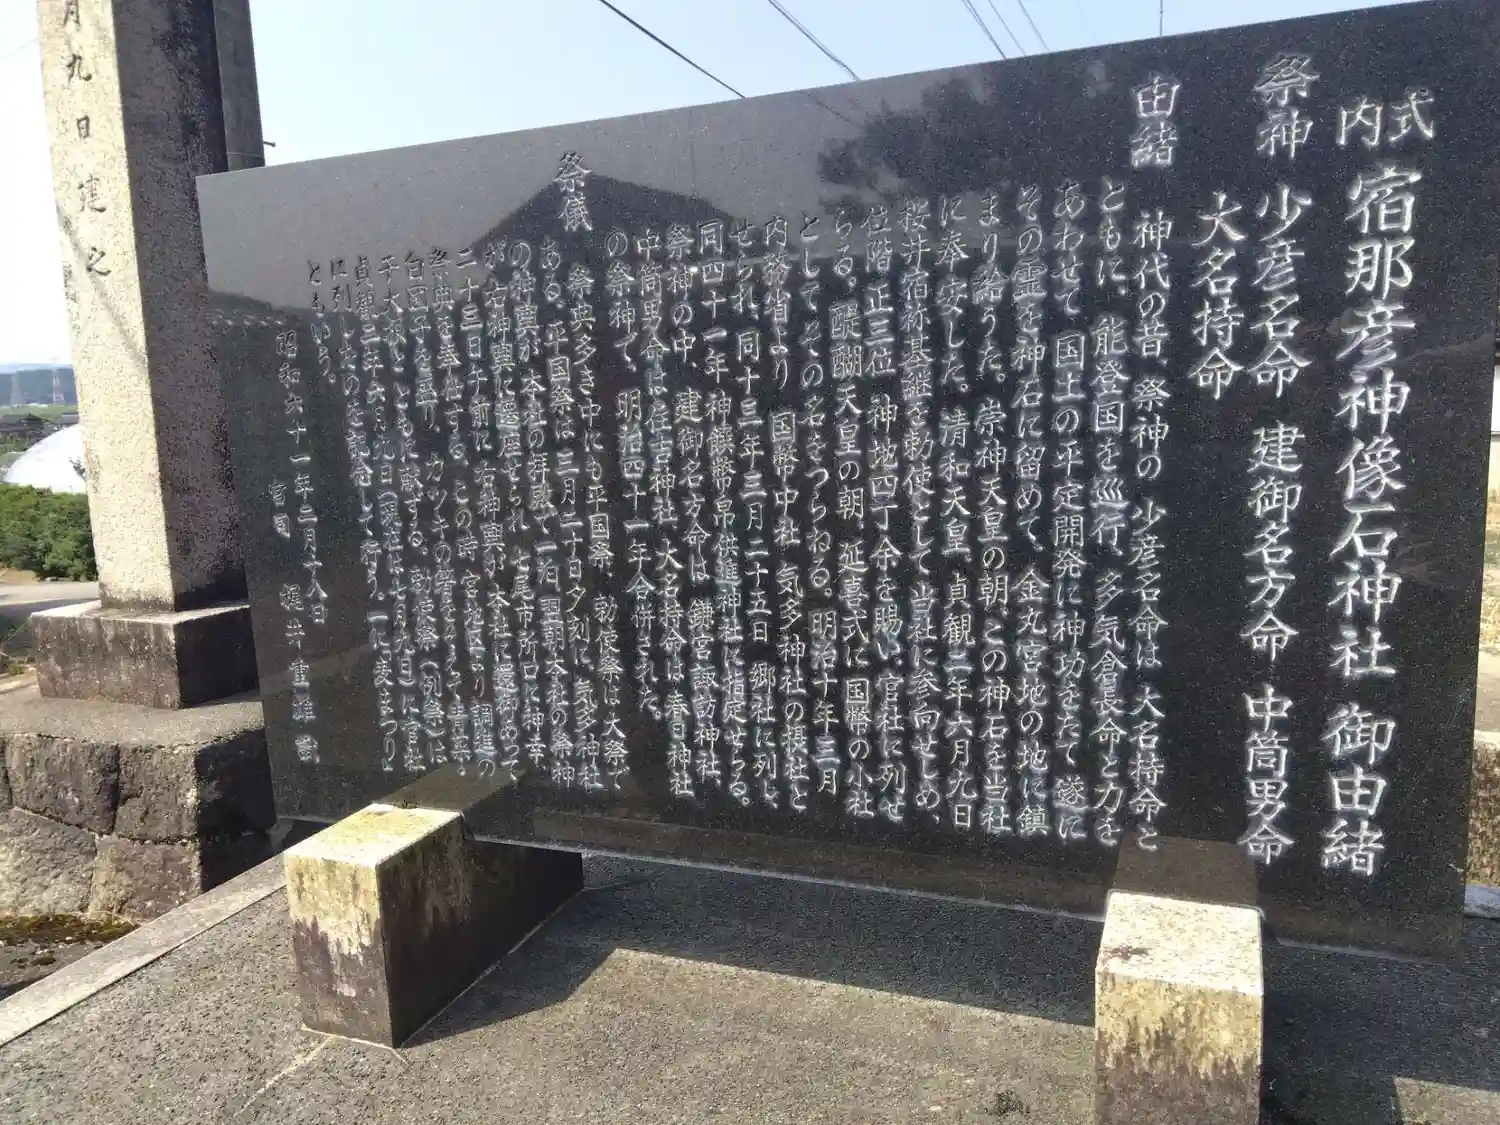 式内 宿那彦神像石神社 御由緒
祭神 少彦名命 建御名方命 中筒男命
大名持命
由緒 神代の昔 祭神の 少彦名命は 大名持命と
ともに、能登国を巡行、多気倉長命と力を
あわせて 国土の平定開発に神功をたて 遂に
その霊を神石に留めて、金丸宮地の地に鎮
まり給うた。崇神天皇の朝、この神石を当社
に奉安した。清和天皇 貞観二年六月九日
桜井宿祢基継を勅使として 当社に参向せしめ、
位階 正三位 神地四丁余を賜い、官社に列せ
らる。醍醐天皇の朝、延喜式に国幣の小社
として その名をつらねる。明治十年三月
内務省より 国幣中社 気多神社の摂社と
せられ、同十三年三月二十五日 郷社に列し、
同四十一年 神饌幣帛供進神社に指定せらる。
祭神の中、建御名方命は 鎌宮諏訪神社、
中筒男命は住吉神社、大名持命は春日神社
の祭神で、明治四十一年合併された。
祭儀 祭典多き中にも平国祭、勅使祭は大祭で
ある。平国祭は 三月二十日夕刻に 気多神社
の神輿が 本社の拝殿で一泊 翌朝本社の祭神
が 右神輿に遷座せられ 七尾市所口に神幸、
二十三日午前に 右神輿が 本社に還御あって
祭典を奉仕する。この時 宮地区より 調進の
白団子を盛り、カツキの箸をそえて 青草
平太ねぎ ともに献ずる。勅使祭(例祭)は
貞観二年六月九日(現在は七月九日)に官社
に列したのを記念して行う。一に麦まつりと
ともいう。
昭和六十一年三月十八日
宮司 梶井重雄
月九日建之